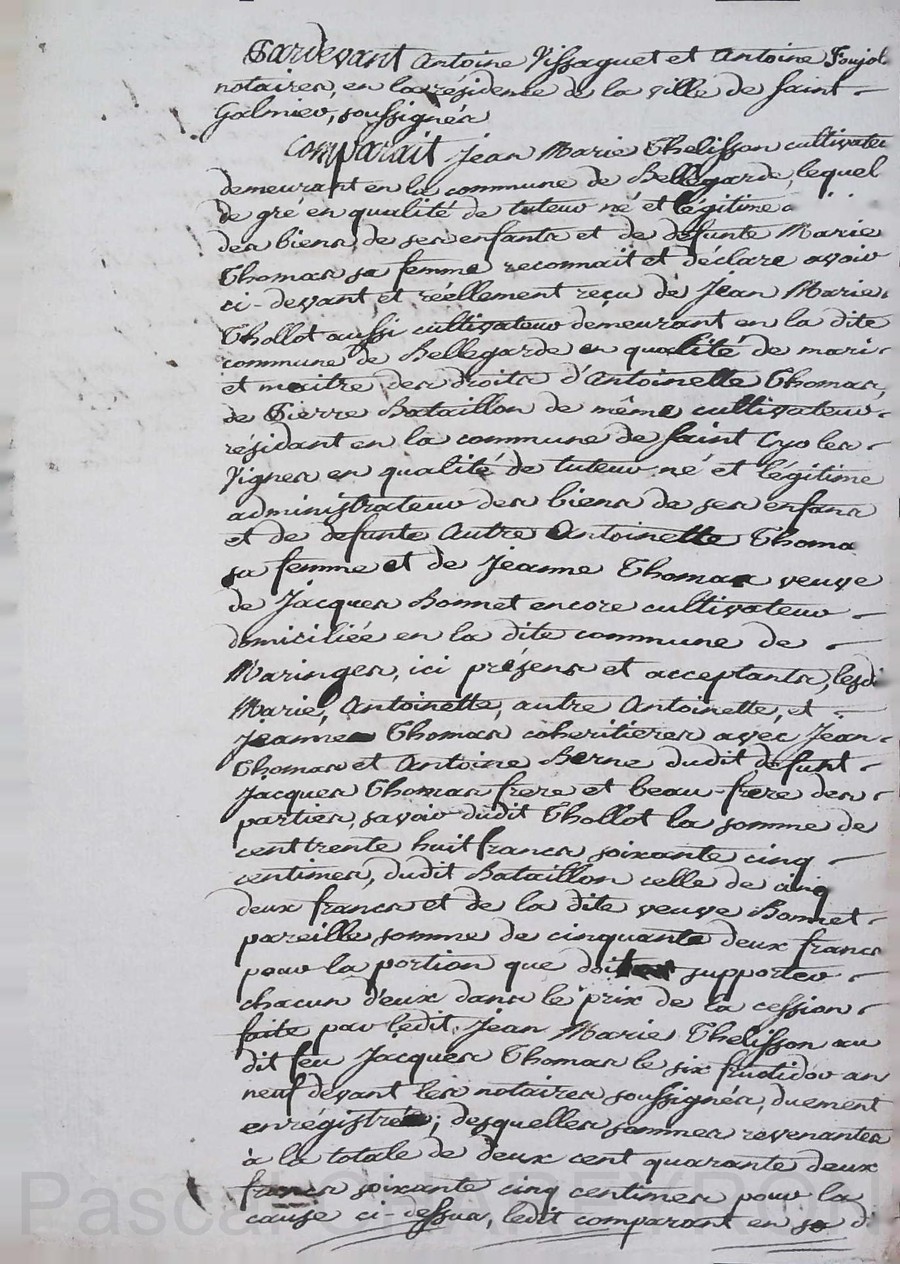 Pardevant Antoine Vissaguet et Antoine Foujol
notaires, en la résidence de la ville de Saint
Galmier, soussignés
Comparait Jean Marie Thelisson cultivateu
demeurant en la commune de Bellegarde, lequel
de gré en qualité de tuteur né et légitime
des biens de ses enfants et de défunte Marie
Thomas sa femme reconnaït et déclare avoir
ci-devant et réellement reçu de Jean Marie
Thollot aussi cultivateur demeurant en la dite
commune de Bellegarde en qualité de mari
et maitre des droits d'Antoinette Thomas,
de Pierre Bataillon de même cultivateur
résidant en la commune de Saint Cyr les
Vignes en qualité de tuteur né et légitime
administrateur des biens de ses enfans
et de défunte Autre Antoinette Thoma
sa femme et de Jeanne Thomas veuve
de Jacques Bonnet encore cultivateur
domiciliée en la dite commune de
Maringes, ici présens et acceptants, lesdi
Marie, Antoinette, autre Antoinette, et
Jeanne Thomas coheritieres avec Jean
Thomas et Antoine Berne dudit défunt
Jacques Thomas frere et beau-frere des
parties, savoir dudit Thollot la somme de
cent trente huit francs soixante cinq
centimes, dudit Bataillon celle de cinq
deux francs et de la dite veuve Bonnet
pareille somme de cinquante deux francs
pour la portion que doit supporter
chacun d'eux dans le prix de la cession
faite par ledit Jean Marie Thelisson au
dit feu Jacques Thomas le six fructidor an
neuf devant les notaires soussignés, duement
enrégistrée; desquelles sommes revenantes
à la totale de deux cent quarante deux
francs soixante cinq centimes pour la
cause ci-dessus, ledit comparant en sa di
Pascal CHAREYRON